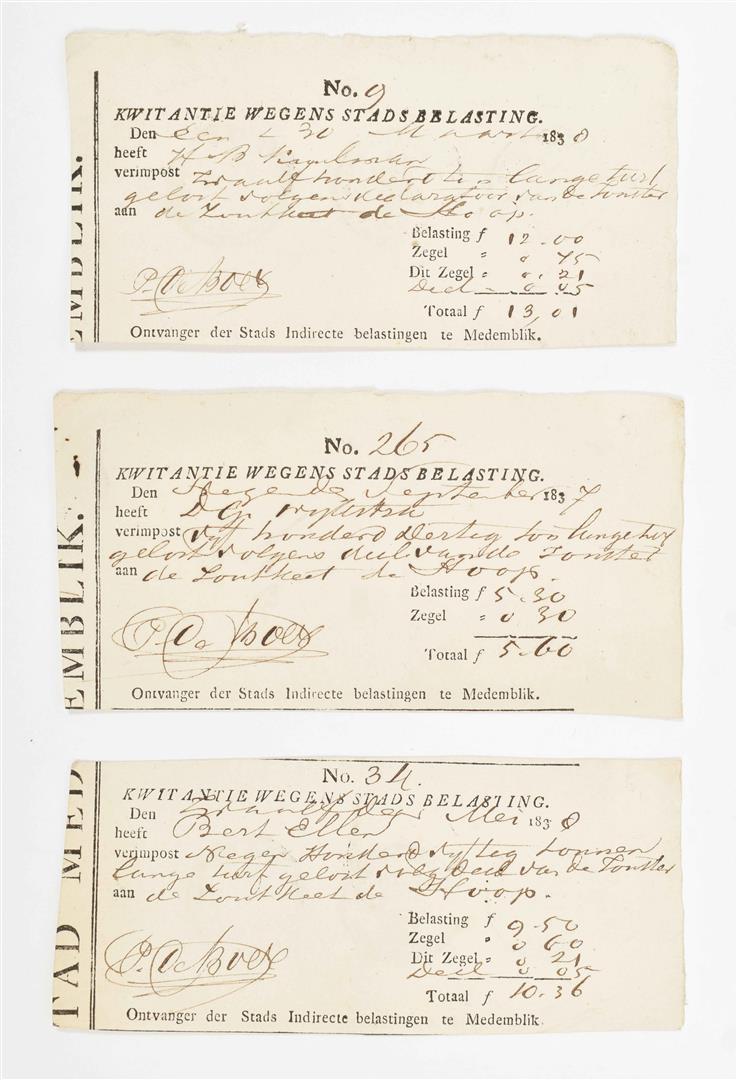 No. 9
KWITANTIE WEGENS STADS BELASTING.
Den een & 30 Maart 1838
heeft H B
verimpost Twaalf honderd ton lange turf
gelost volgens declaratoor van de Tonster
aan de Zoutkeet de Hoop.
Belasting f 12.00
Zegel " 0.75
Dit Zegel " 0.21
Decl 0.05
Totaal f 13,01
P. De Boer
Ontvanger der Stads Indirecte belastingen te Medemblik.
EMBLIK.
No. 265
KWITANTIE WEGENS STADS BELASTING.
Den Negende September 1837
heeft D G
verimpost Vyf honderd Dertig ton lange turf
gelost volgens decl van de Tonster
aan de Zoutkeet de Hoop.
Belasting f 5.30
Zegel " 0 30
Totaal f 5.60
P. De Boer
Ontvanger der Stads Indirecte belastingen te Medemblik.
EMBLIK.
No. 34.
KWITANTIE WEGENS STADS BELASTING.
Den Twaalfden Mei 1838
heeft Bert Ellen
verimpost Negen Honderd vyftig tonnen
lange turf gelost volg decl van de Tonster
aan de Zoutkeet de Hoop.
Belasting f 9.50
Zegel " 0 60
Dit Zegel " 0 21
Decl 0 05
Totaal f 10.36
P. De Boer
Ontvanger der Stads Indirecte belastingen te Medemblik.
TAD MED